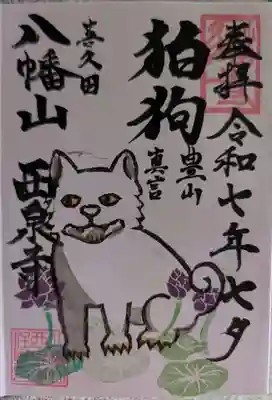 奉拝
令和七年七夕
狛狗
豊山
真言
喜久田
八幡山
西泉寺